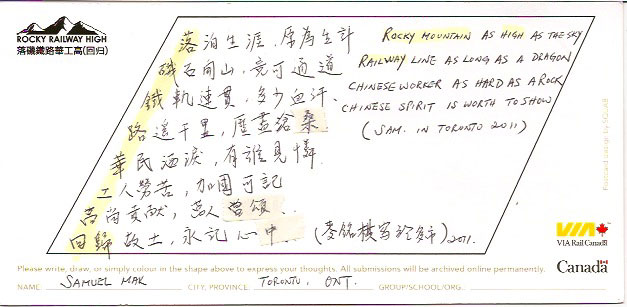 ROCKY RAILWAY HIGH
落磯鐵路華工高(回归)
落泊生涯, 原為生計
磯石開山, 竟可通道
鐵軌連貫, 多少血汗.
路遙千里, 歷盡滄桑
華民洒淚, 有誰見憐.
工人勞苦, 加國可記
高尚貢獻, 萬人曾頌.
回歸故土, 永記心中. (麥錦横寫於多市) 2011.
ROCKY MOUNTAIN AS HIGH AS THE SKY
RAILWAY LINE AS LONG AS A DRAGON
CHINESE WORKER AS HARD AS A ROCK
CHINESE SPIRIT IS WORTH TO SHOW
(SAM. IN TORONTO 2011)
Postcard design by
VIA
VIA Rail Canada
Canada
Please write, draw, or simply colour in the shape above to express your thoughts. All submissions will be archived online permanently.
NAME: SAMUEL MAK CITY, PROVINCE: TORONTO, ONT. GROUP/SCHOOL/ORG.: